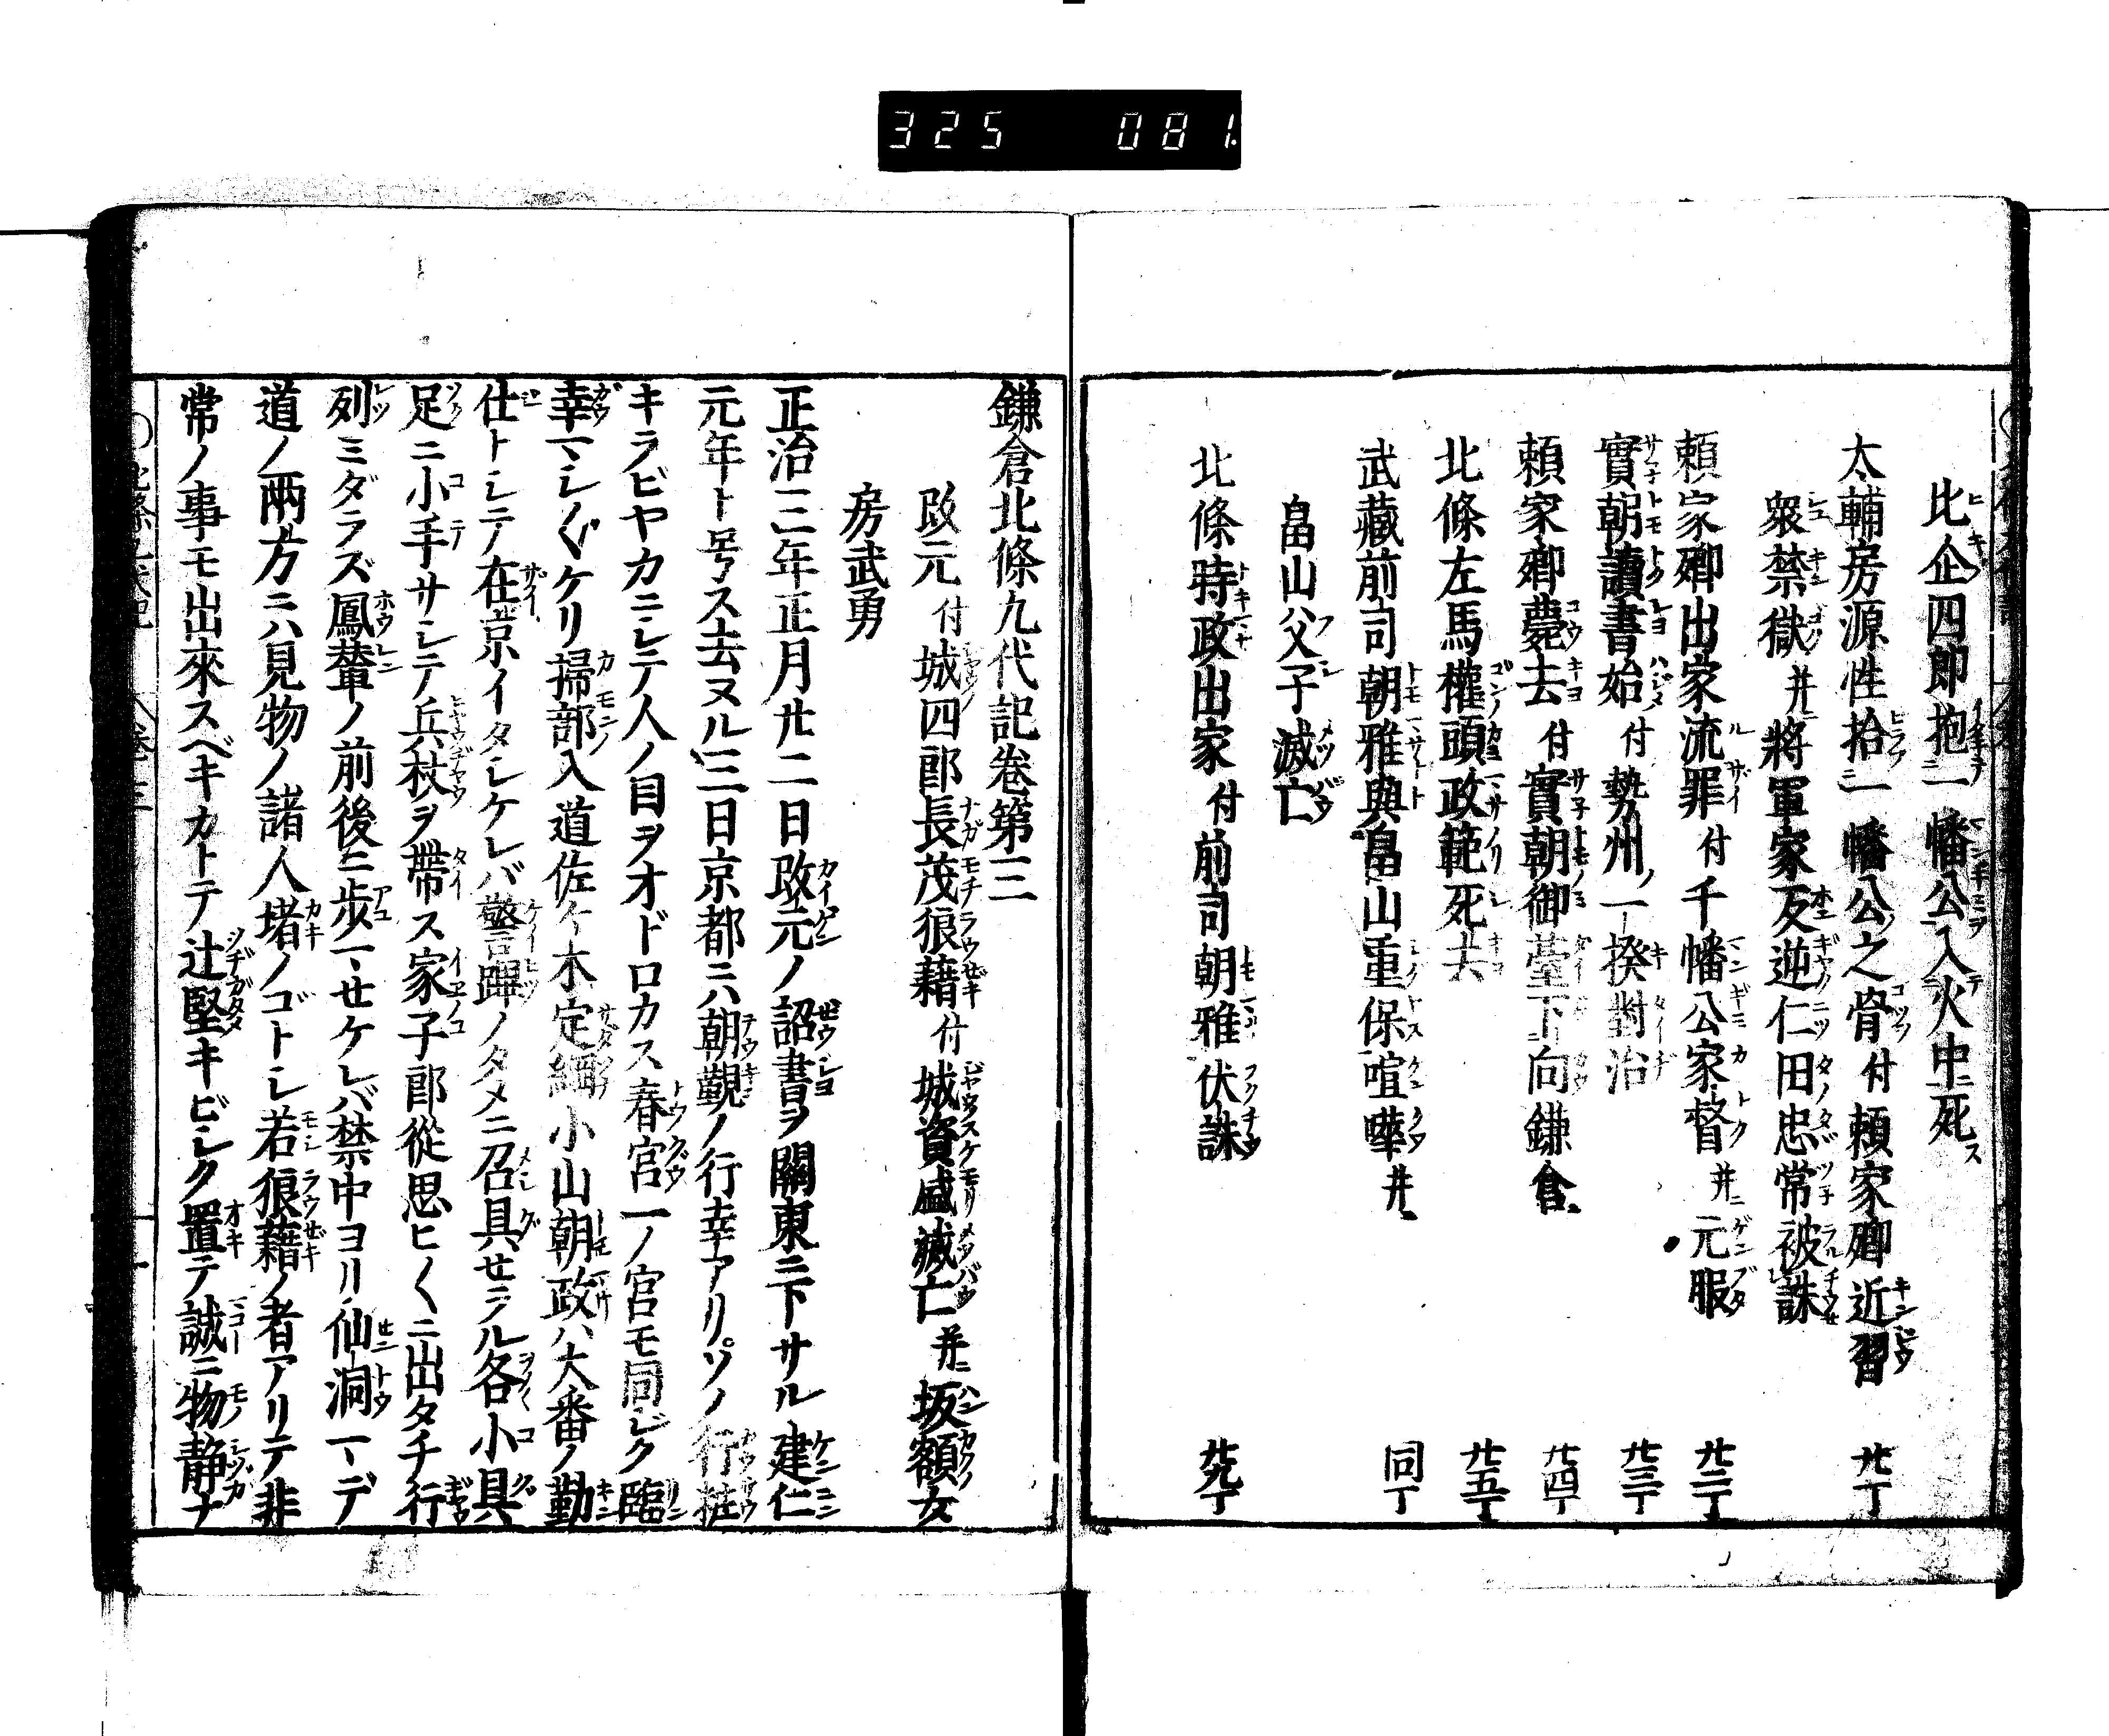 325 081.
比企四郎抱一幡公入火中死ス
太輔房源性拾一幡公之骨付頼家卿近習 廾一丁
衆禁獄并ニ將軍家反逆仁田忠常被誅
頼家卿出家流罪付千幡公家督并ニ元服 廾二丁
實朝讀書始付勢州ノ一揆對治 廾三丁
頼家卿薨去付實朝御臺下向鎌倉 廾四丁
北條左馬權頭政範死去 廾五丁
武藏前司朝雅與畠山重保喧嘩并 同丁
畠山父子滅亡
北條時政出家付前司朝雅伏誅 廾九丁
鎌倉北條九代記卷第三
改元付城四郎長茂狼藉付城資盛滅亡并ニ坂額女
房武勇
正治三年正月廿二日改元ノ詔書ヲ關東ニ下サル建仁
元年ト号ス去ヌル三日京都ニハ朝覲ノ行幸アリソノ行粧
キラビヤカニシテ人ノ目ヲオドロカス春宮一ノ宮モ同ジク臨
幸マシ〳〵ケリ掃部入道佐ケ木定綱小山朝政ハ大番ノ勤
仕トシテ在京イタシケレバ警蹕ノタメニ召具せラル各小具
足ニ小手サシテ兵杖ヲ帶ス家子郎從思ヒ〳〵ニ出タチ行
列ミダラズ鳳輦ノ前後ニ歩マせケレバ禁中ヨリ仙洞マデ
道ノ兩方ニハ見物ノ諸人堵ノゴトシ若狼藉ノ者アリテ非
常ノ事モ出來スベキカトテ辻堅キビシク置テ誠ニ物静ナ